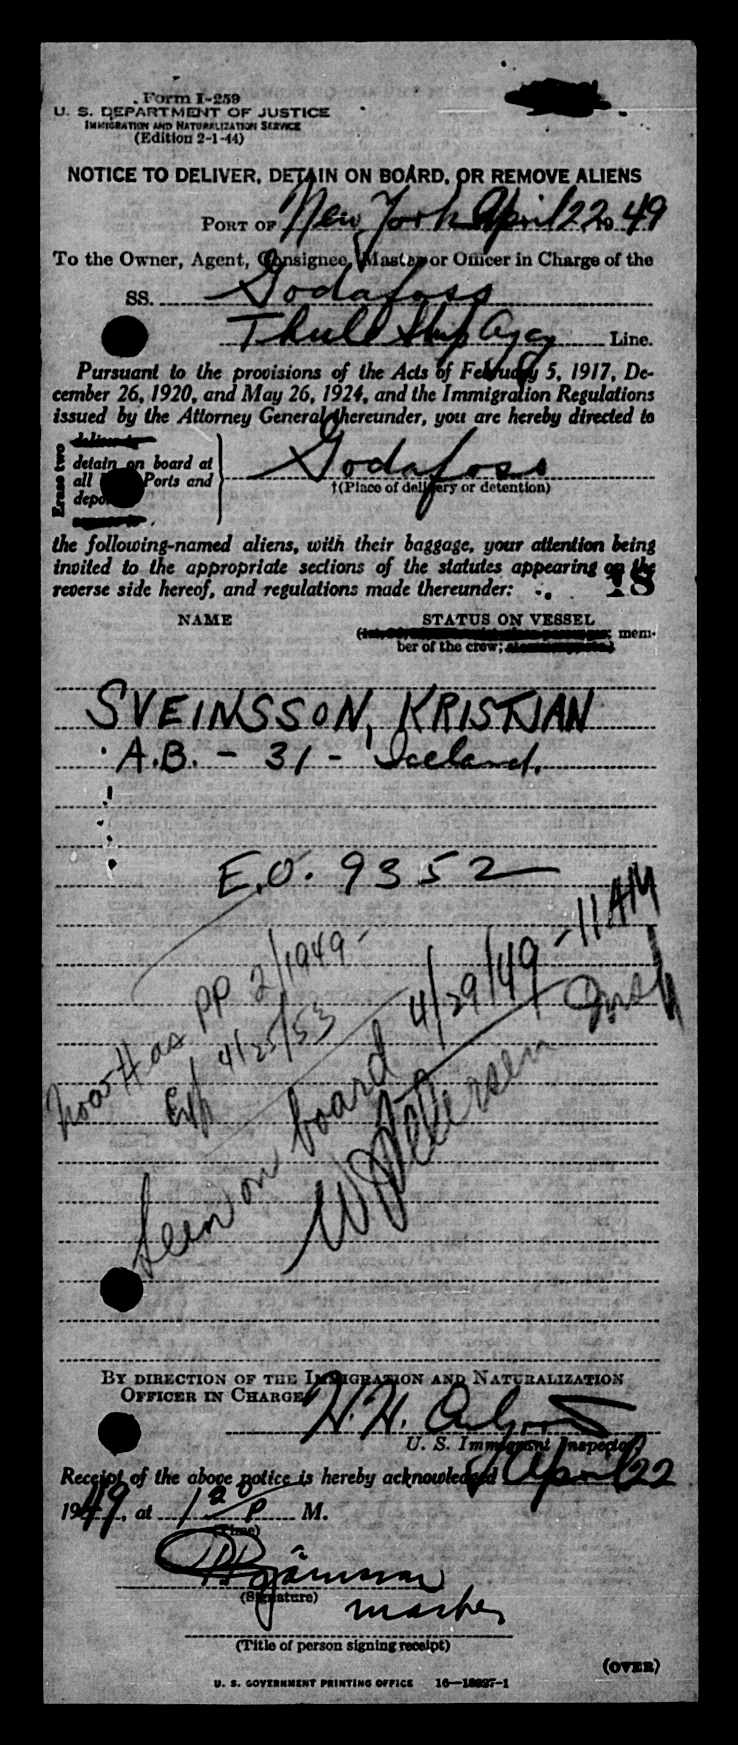 Form I-259
U. S. DEPARTMENT OF JUSTICE
IMMIGRATION AND NATURALIZATION SERVICE
(Edition 2-1-44)
NOTICE TO DELIVER, DETAIN ON BOARD, OR REMOVE ALIENS
PORT OF New York April 22 1949
To the Owner, Agent, Consignee, Master or Officer in Charge of the
SS. Godafoss
Thule Ship Agcy Line.
Pursuant to the provisions of the Acts of February 5, 1917, De-
cember 26, 1920, and May 26, 1924, and the Immigration Regulations
issued by the Attorney General thereunder, you are hereby directed to
Erase two
detain on board at
all Ports and
Godafoss
†(Place of delivery or detention)
the following-named aliens, with their baggage, your attention being
invited to the appropriate sections of the statutes appearing on the
reverse side hereof, and regulations made thereunder:
18
NAME STATUS ON VESSEL
mem-
ber of the crew;
SVEINSSON, KRISTJAN
A.B. - 31 - Iceland.
E.O. 9352
PP 2/1949 -
Exp 4/25/53
Seen on board 4/29/49 - 11 AM
W Petersen Insp
BY DIRECTION OF THE IMMIGRATION AND NATURALIZATION
OFFICER IN CHARGE
H. H.
U. S. Immigrant Inspector
Receipt of the above notice is hereby acknowledged April 22
1949, at 1 20 P M.
(Time)
(Signature)
master
(Title of person signing receipt)
(OVER)
U. S. GOVERNMENT PRINTING OFFICE 16—18827-1